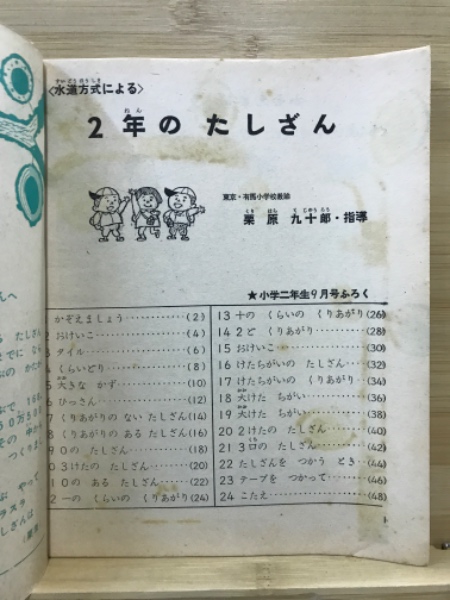 〈水道方式による〉
2年の たしざん
東京・有馬小学校教諭
栗原 九十郎・指導
★小学二年生9月号ふろく
かぞえましょう (2)
2 おけいこ (4)
3 タイル (6)
4 くらいどり (8)
5 大きな かず (10)
6 ひっさん (12)
7 くりあがりの ない たしざん (14)
8 くりあがりの ある たしざん (16)
9 0の たしざん (18)
10 3けたの たしざん (20)
11 0の ある たしざん (22)
12 一の くらいの くりあがり (24)
13 十の くらいの くりあがり (26)
14 2ど くりあがり (28)
15 おけいこ (30)
16 けたちがいの たしざん (32)
17 けたちがいの くりあがり (34)
18 大けた ちがい (36)
19 大けた ちがい (38)
20 2けたの たしざん (40)
21 3口の たしざん (42)
22 たしざんを つかう とき (44)
23 テープを つかって (46)
24 こたえ (48)
1